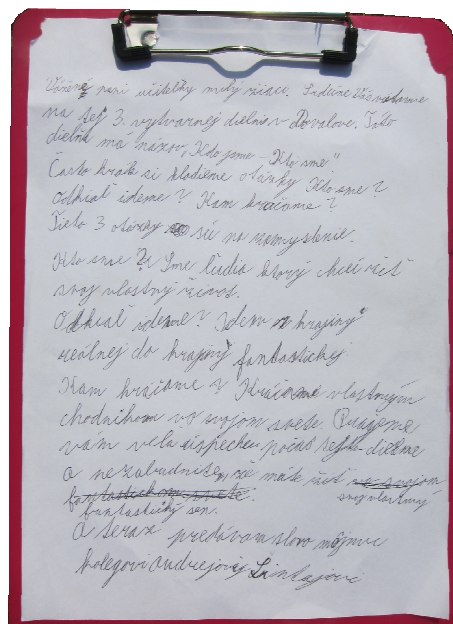 Vážené pani učiteľky milý žiaci. Srdečne Vás vítame
na tej 3. výtvarnej dielne v Dovalove. Táto
dielňa má názov, Kto sme - Kto sme"
Často krát si kladieme otázky Kto sme?
Odkiaľ ideme? Kam kráčame?
Tieto 3 otázky sú na zamyslenie.
Kto sme? Sme ľudia ktorý chcú žiť
svoj vlastný život.
Odkiaľ ideme? Idem z krajiny
reálnej do krajiny fantastickej
Kam kráčame? Kráčame vlastným
chodníkom vo svojom svete. Prajeme
vám veľa úspechu počas tejto dielne
a nezabudnite, že máte žiť
svoj vlastný
fantastický sen.
A teraz predávam slovo môjmu
kolegovi Andrejovi